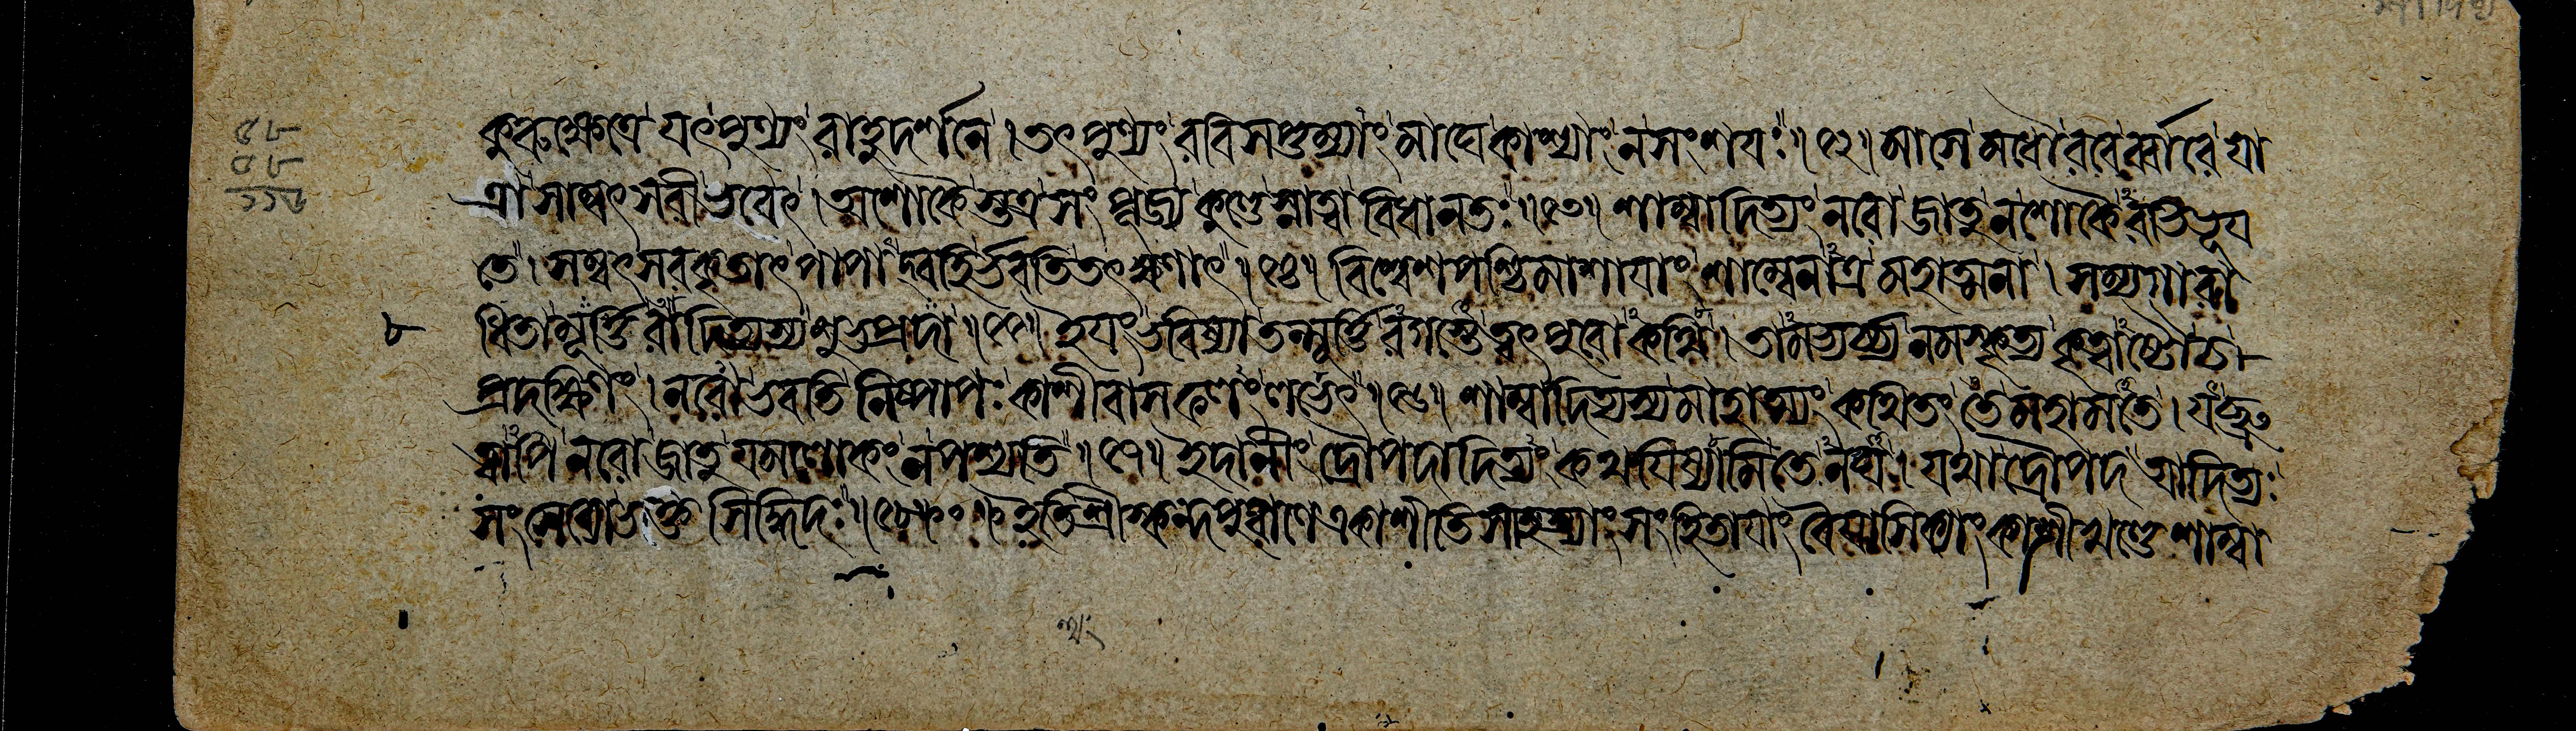 কুরুক্ষেত্রে যৎ পুণ্যং রাহুদর্শনে। তৎ পুণ্যং রবিসপ্তম্যাং মাঘে কাশ্যাং ন সংশয়ঃ॥৫২॥ মাসে মধৌ রবের্ব্বারে যা
ত্রা সাম্বৎসরী ভবেৎ। অশোকৈস্তত্র সংপূজ্য কুণ্ডে স্নাত্বা বিধানতঃ॥৫৩॥ শাম্বাদিত্যং নরো জাতু ন শোকৈরভিভূয
তে। সম্বৎসরকৃতাৎ পাপাদ্বহির্ভবতি তৎক্ষণাৎ॥৫৪॥ বিশ্বেশপশ্চিমাশাযাং শাম্বেনাত্র মহাত্মনা। সম্যগারা
ধিতা মূর্ত্তিরাদিত্যস্য শুভপ্রদা॥৫৫॥ ইযং ভবিষ্যা তন্মূর্ত্তিরগস্তে ত্বৎপুরোকথি। তামভ্যর্চ্য নমস্কৃত্য কৃত্বাষ্টৌ চ
প্রদক্ষিণং। নরো ভবতি নিষ্পাপঃ কাশীবাসফলং লভেৎ॥৫৬॥ শাম্বাদিত্যস্য মাহাত্ম্যং কথিতং তে মহামতে। যচ্ছ্রু
ত্বাপি নরো জাতু যমলোকং ন পশ্যতি॥৫৭॥ ইদানীং দ্রৌপদাদিত্যং কথযিষ্যামি তেনঘ। যথা দ্রৌপদ আদিত্যঃ
সংসেব্যো ভক্তসিদ্ধিদঃ॥৫৮॥ ইতি শ্রীস্কন্দপুরাণে একাশীতিসাহস্র্যাং সংহিতাযাং বৈয়াসিক্যাং কাশীখণ্ডে শাম্বা